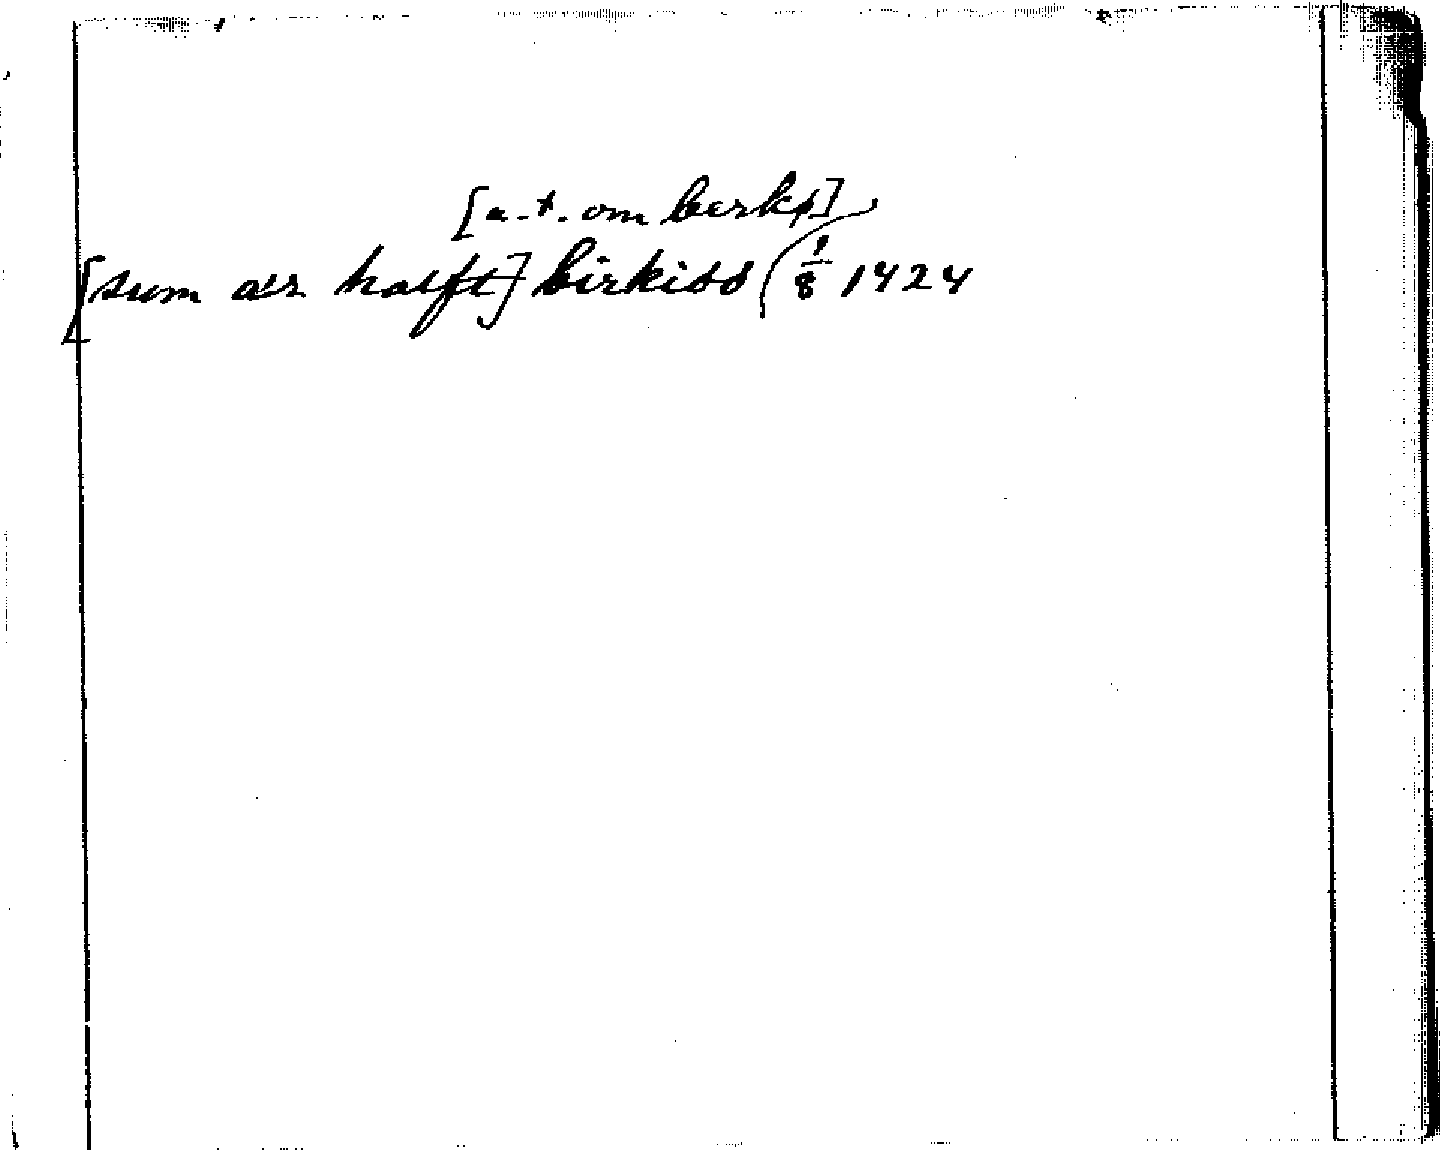 [a.t. om berkø]
[sum ær halft] birkisø (1/8 1424